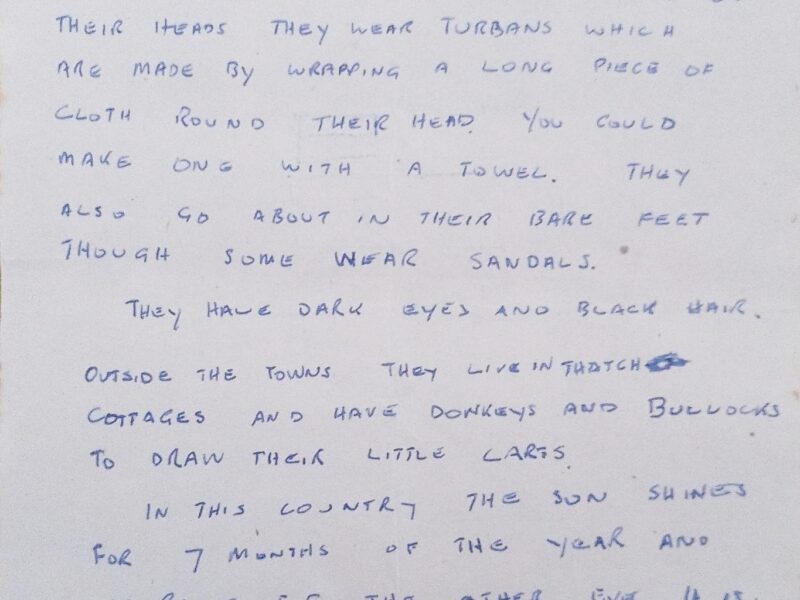 THEIR HEADS THEY WEAR TURBANS WHICH
ARE MADE BY WRAPPING A LONG PIECE OF
CLOTH ROUND THEIR HEAD. YOU COULD
MAKE ONE WITH A TOWEL. THEY
ALSO GO ABOUT IN THEIR BARE FEET
THOUGH SOME WEAR SANDALS.
THEY HAVE DARK EYES AND BLACK HAIR.
OUTSIDE THE TOWNS THEY LIVE IN THATCH
COTTAGES AND HAVE DONKEYS AND BULLOCKS
TO DRAW THEIR LITTLE CARTS.
IN THIS COUNTRY THE SUN SHINES
FOR 7 MONTHS OF THE YEAR AND
THE OTHER FIVE IT IS